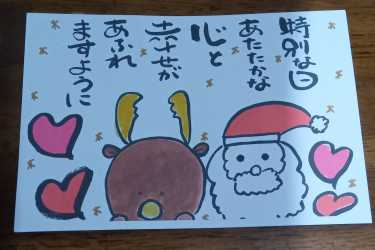 特別な日
あたたかな
心と
幸せが
あふれ
ますように